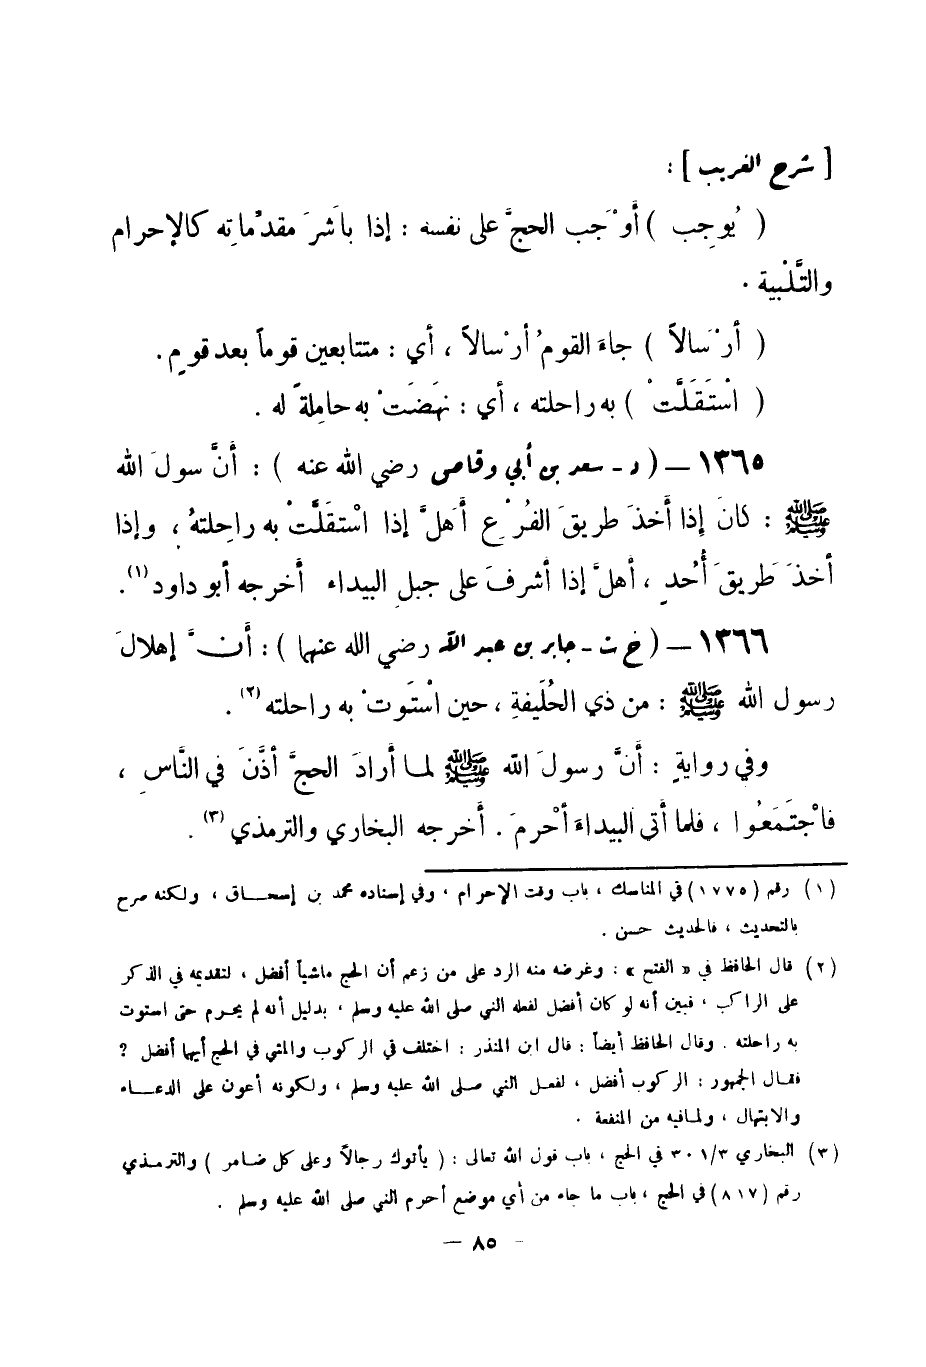 [ شرح الغريب ] :
( يُوجِب ) أوْجَب الحجَّ على نفسه : إذا باشَرَ مقدِّماتِه كالإحرام
والتَّلْبية .
( أرْسَالاً ) جاءَ القومُ أرْسالاً ، أي : متتابعين قوماً بعد قومٍ .
( اسْتَقَلَّتْ ) به راحلته ، أي : نهَضَتْ به حامِلةً له .
١٣٦٥ – ( د - سعد بن أبي وقاص رضي الله عنه ) : أنَّ سولَ الله
ﷺ : كانَ إذا أخذَ طريقَ الفُرْعِ أهلَّ إذا اسْتقَلَّتْ به راحِلتهُ ، وإذا
أخذَ طريقَ أُحُدٍ ، أهلَّ إذا أشرفَ على جبلِ البيداء أخرجه أبو داود (١) .
١٣٦٦ – ( خ ت - جابر بن عبد الله رضي الله عنهما ) : أنَّ إهلالَ
رسول الله ﷺ : من ذي الحُلَيفةِ ، حين اسْتَوتْ به راحلته (٢) .
وفي روايةٍ : أنَّ رسولَ الله ﷺ لما أرادَ الحجَّ أذَّنَ في النَّاسِ ،
فاْجتَمَعُوا ، فلما أتى البيداءَ أحْرمَ . أخرجه البخاري والترمذي (٣) .
(١) رقم (١٧٧٥) في المناسك ، باب وقت الإحرام ، وفي إسناده محمد بن إسحاق ، ولكنه صرح
بالتحديث ، فالحديث حسن .
(٢) قال الحافظ في « الفتح » : وغرضه منه الرد على من زعم أن الحج ماشياً أفضل ، لتقديمه في الذكر
على الراكب ، فبين أنه لو كان أفضل لفعله النبي صلى الله عليه وسلم ، بدليل أنه لم يحرم حتى استوت
به راحلته . وقال الحافظ أيضاً : قال ابن المنذر : اختلف في الركوب والمشي في الحج أيهما أفضل ؟
فقال الجمهور : الركوب أفضل ، لفعل النبي صلى الله عليه وسلم ، ولكونه أعون على الدعاء
والابتهال ، ولما فيه من المنفعة .
(٣) البخاري ٣٠١/٣ في الحج ، باب قول الله تعالى : ( يأتوك رجالاً وعلى كل ضامر ) والترمذي
رقم (٨١٧) في الحج ، باب ما جاء من أي موضع أحرم النبي صلى الله عليه وسلم .
– ٨٥ –